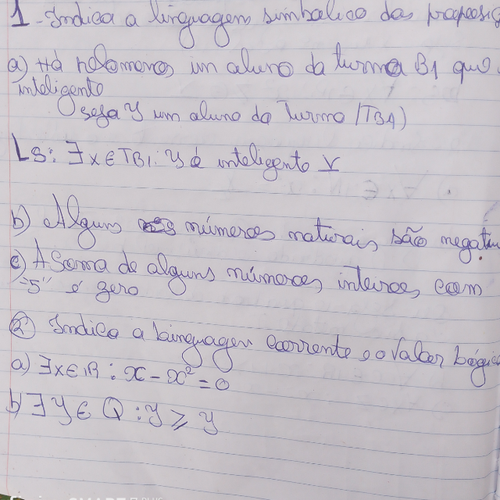 1 - Indica a linguagem simbolica das proposiç
a) Há pelomenos un aluno da turma B1 que
inteligente
seja y um aluno da Turma (TB1)
Ls: ∃x∈TB1: y é inteligente V
b) Alguns números naturais são negati
c) A Soma de alguns números inteiros com
"5" é zero
2) Indica a linguagem corrente e o valor lógic
a) ∃x∈IR : x - x² = 0
b) ∃ y ∈ Q : y ⩾ y